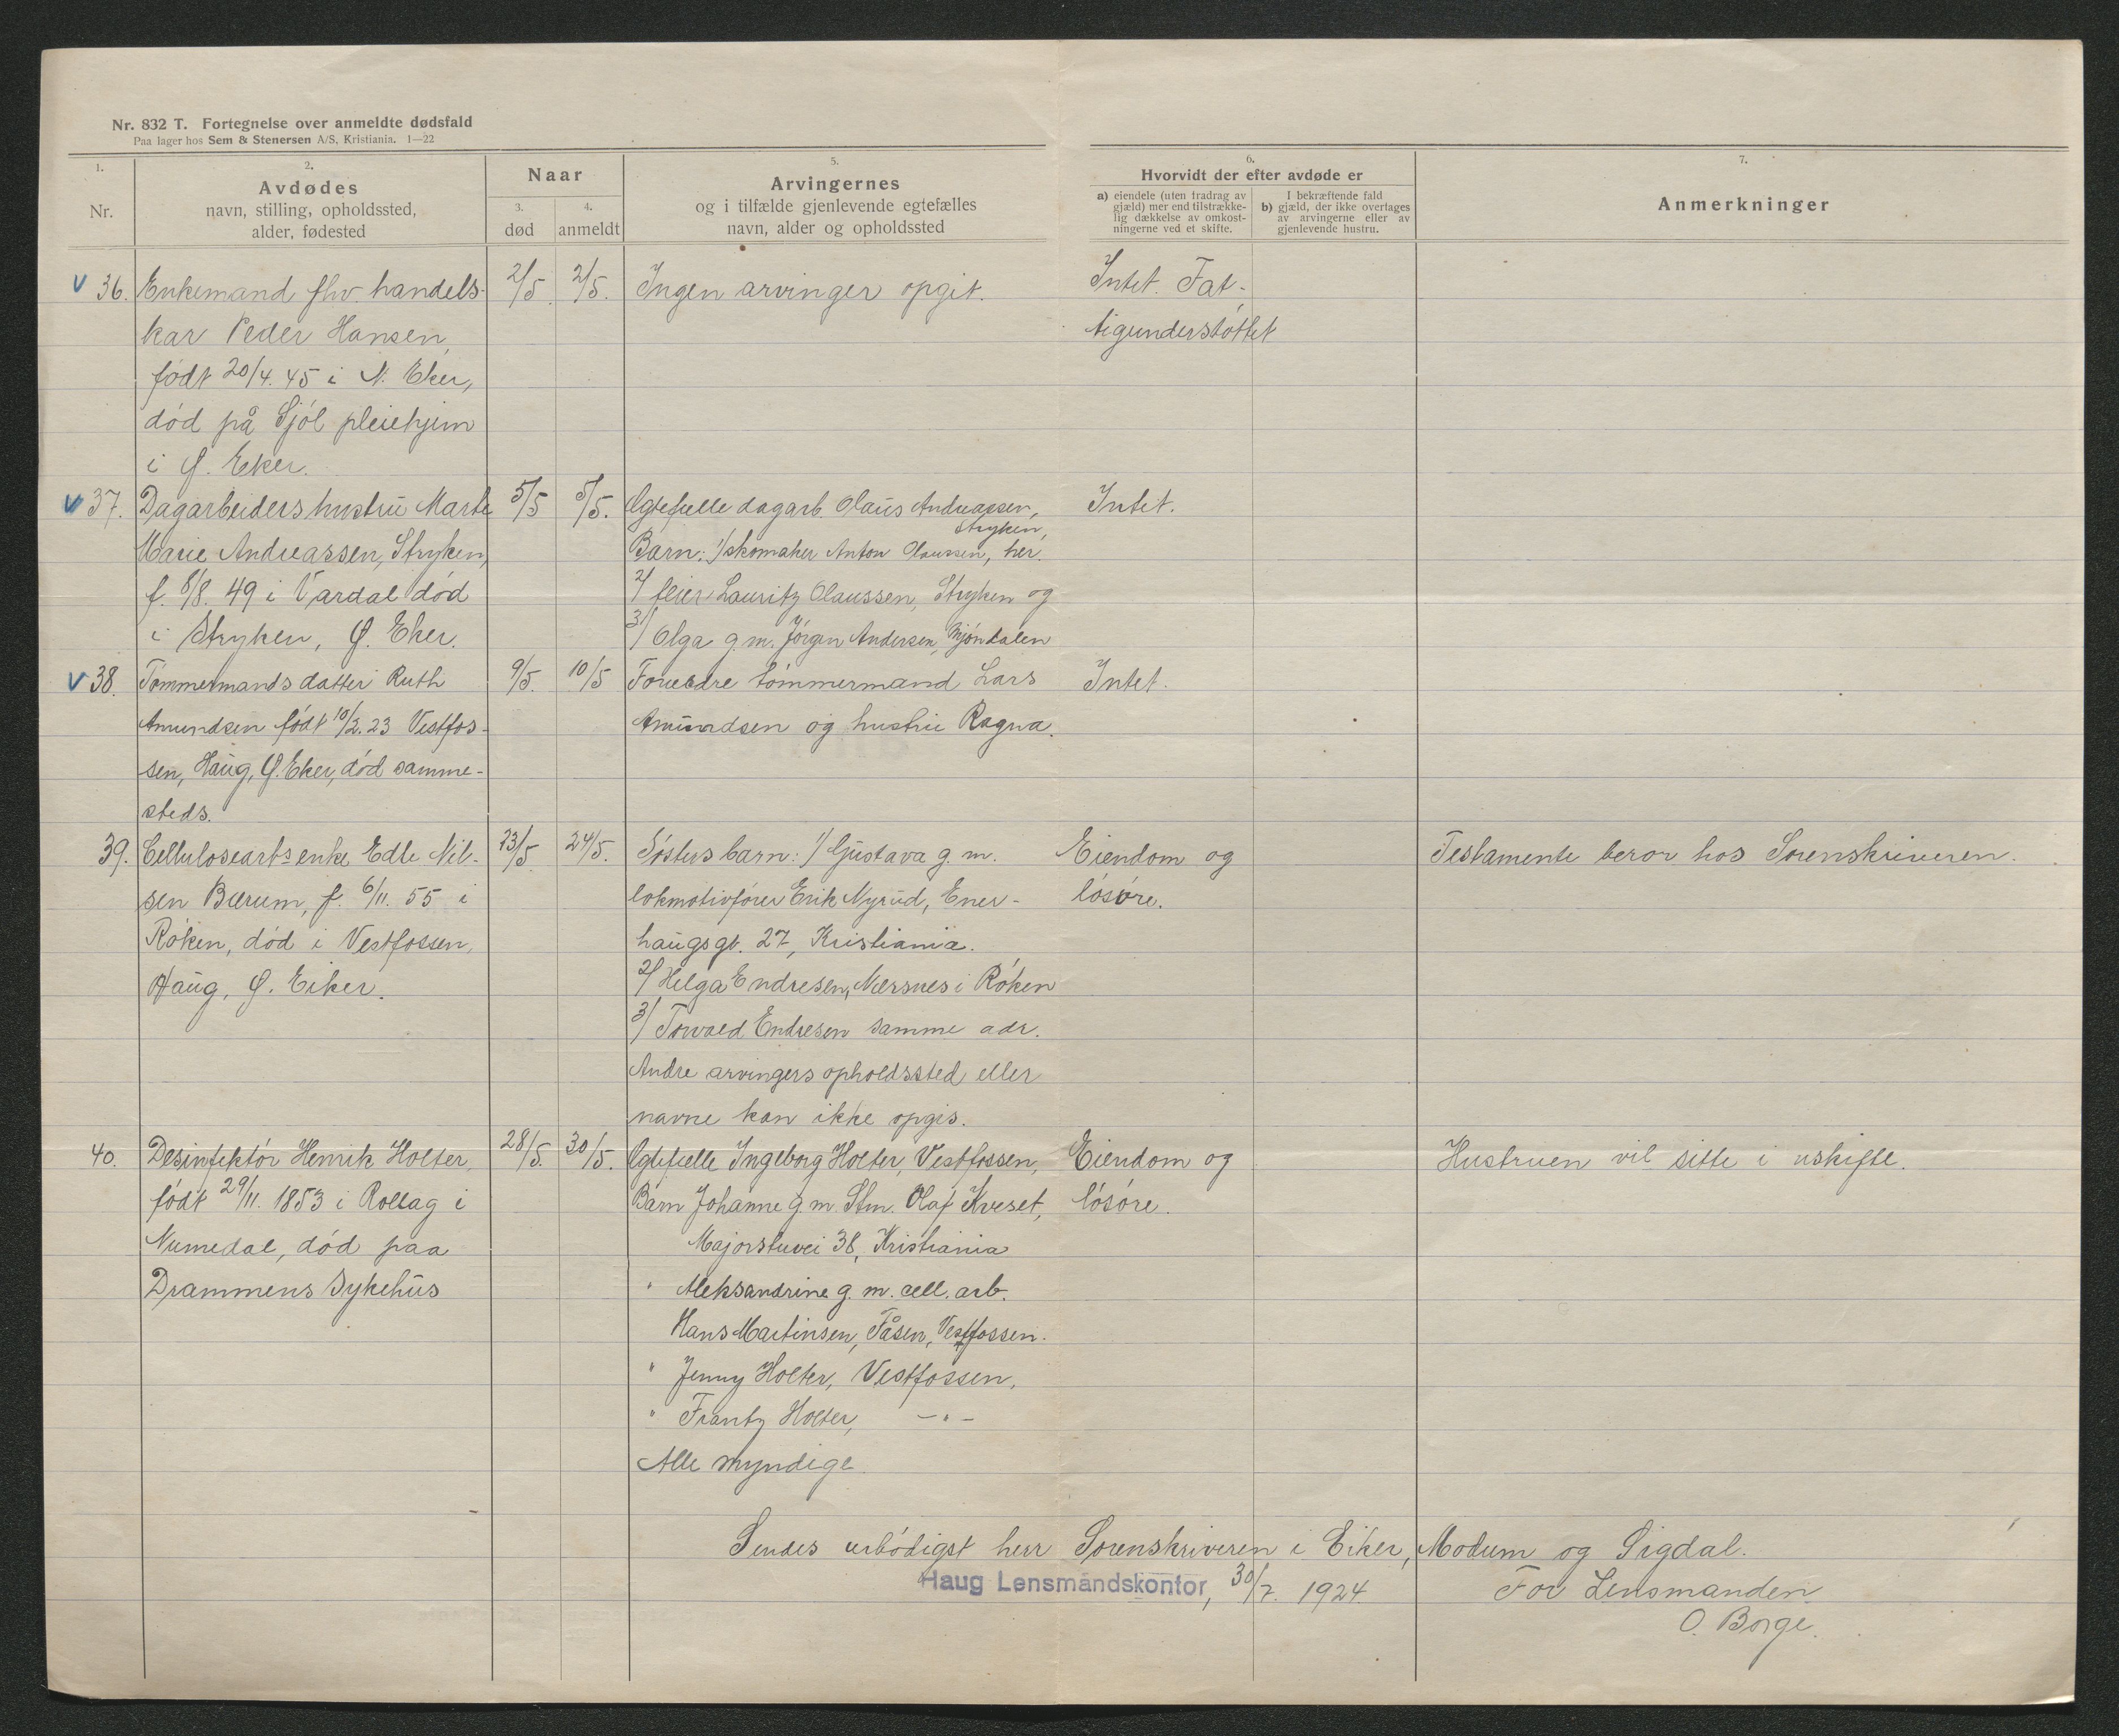 Nr. 832 T. Fortegnelse over anmeldte dødsfald
Paa lager hos Sem & Stenersen A/S, Kristiania. 1—22
1.
Nr.
2.
Avdødes
navn, stilling, opholdssted,
alder, fødested
Naar
3.
død
4.
anmeldt
5.
Arvingernes
og i tilfælde gjenlevende egtefælles
navn, alder og opholdssted
6.
Hvorvidt der efter avdøde er
a) eiendele (uten fradrag av
gjæld) mer end tilstrække-
lig dækkelse av omkost-
ningerne ved et skifte.
I bekræftende fald
b) gjæld, der ikke overtages
av arvingerne eller av
gjenlevende hustru.
7.
Anmerkninger
36. Enkemand fhv. handels- 2/5 2/5. Ingen arvinger opgit. Intet. Fat-
kar Peder Hansen, tigunderstøttet
født 20/4. 45 i N. Eker,
død på Sjøl pleiehjem
i Ø. Eker.
37. Dagarbeiders hustru Marte 5/5 5/5. Egtefelle dagarb. Olaus Andreassen, Intet.
Stryken,
Marie Andreassen, Stryken, Barn: 1/ skomaker Anton Olaussen, her.
f. 8/8. 49 i Vardal død 2/ feier Lauritz Olaussen, Stryken og
i Stryken, Ø. Eker. 3/ Olga g. m. Jørgen Andersen, Mjøndalen
38. Tømmermands datter Ruth 9/5. 10/5 Foreldre tømmermand Lars Intet.
Amundsen født 10/2. 23 Vestfos- Amundsen og hustru Ragna.
sen, Haug, Ø. Eker, død samme-
steds.
39. Cellulosearbs enke Edle Nil- 23/5 24/5. Søsters barn: 1/ Gustava g. m. Eiendom og Testamente beror hos Sorenskriveren.
sen Bærum, f. 6/11. 55 i lokmotivfører Erik Nyrud, Ener- løsøre.
Røken, død i Vestfossen, haugsgt. 27, Kristiania.
Haug, Ø. Eiker. 2/ Helga Endresen, Nærsnes i Røken
3/ Torvald Endresen samme adr.
Andre arvingers opholdssted eller
navne kan ikke opgis.
40. Desinfektør Henrik Holter, 28/5. 30/5. Egtefelle Ingeborg Holter, Vestfossen, Eiendom og Hustruen vil sitte i uskifte.
født 29/11. 1853 i Rollag i Barn Johanne g. m. Stm. Olaf Kveset, løsøre.
Numedal, død paa Majorstuvei 38, Kristiania
Drammens Sykehus " Aleksandrine g. m. cell. arb.
Hans Martinsen, Fåsen, Vestfossen.
" Jenny Holter, Vestfossen,
" Frantz Holter, — " —
Alle myndige.
Sendes ærbødigst herr Sorenskriveren i Eiker, Modum og Sigdal.
Haug Lensmandskontor, 30/7. 1924. For Lensmanden
O. Borge.